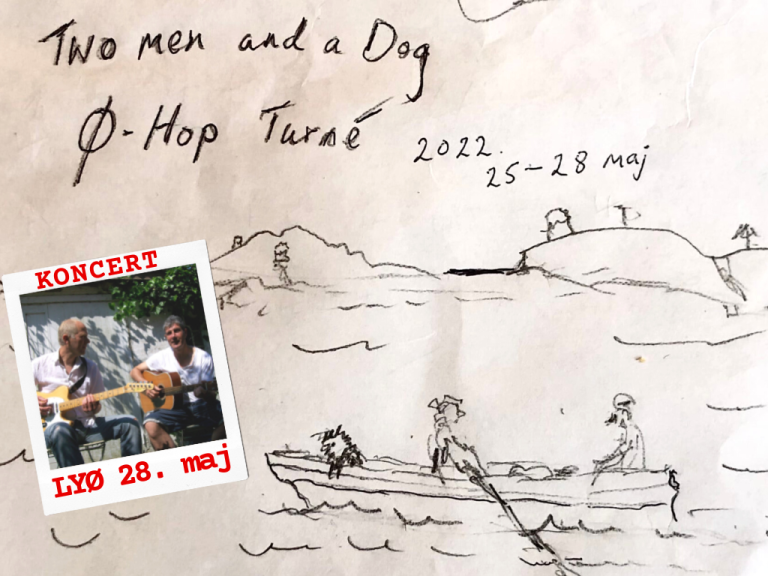 Two men and a Dog
Ø-Hop Turné
2022.
25-28 maj
KONCERT
LYØ 28. maj